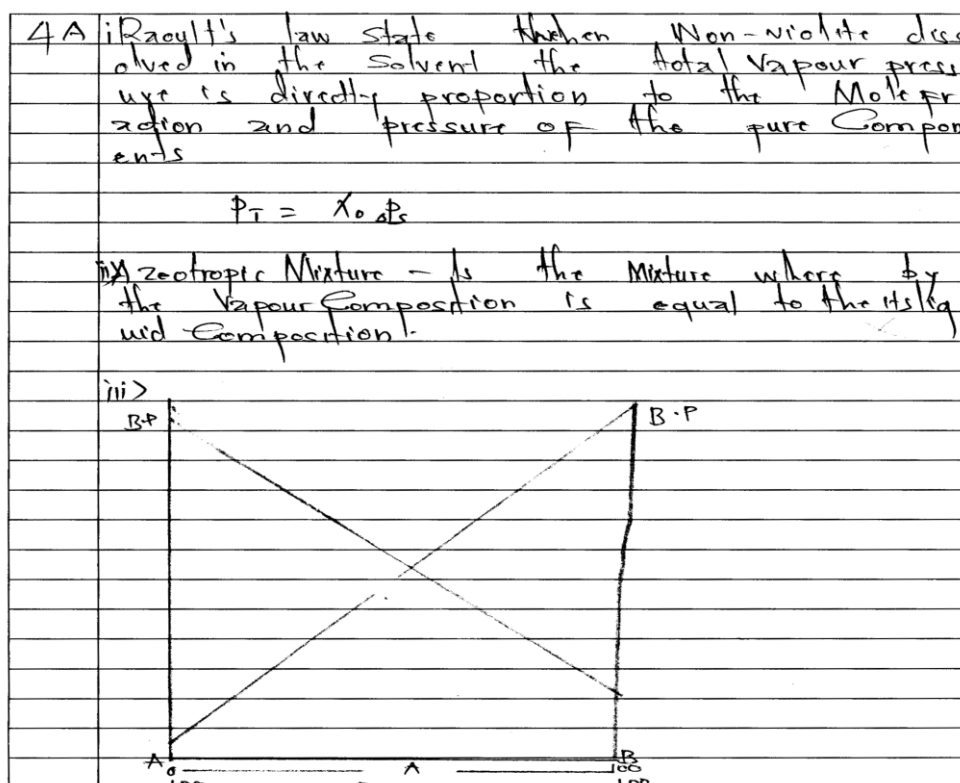 4A i Raoult's law state thwhen Non-violite diss
olved in the Solvent the total Vapour press
ure is directly proportion to the Mole fr
action and pressure of the pure Compon
ents
PT = X₀ . P°s
ii) Azeotropic Mixture - Is the Mixture where by
the Vapour Composition is equal to the its liq
uid Composition.
iii>
B.P B.P
A B
0 A 100
100 100